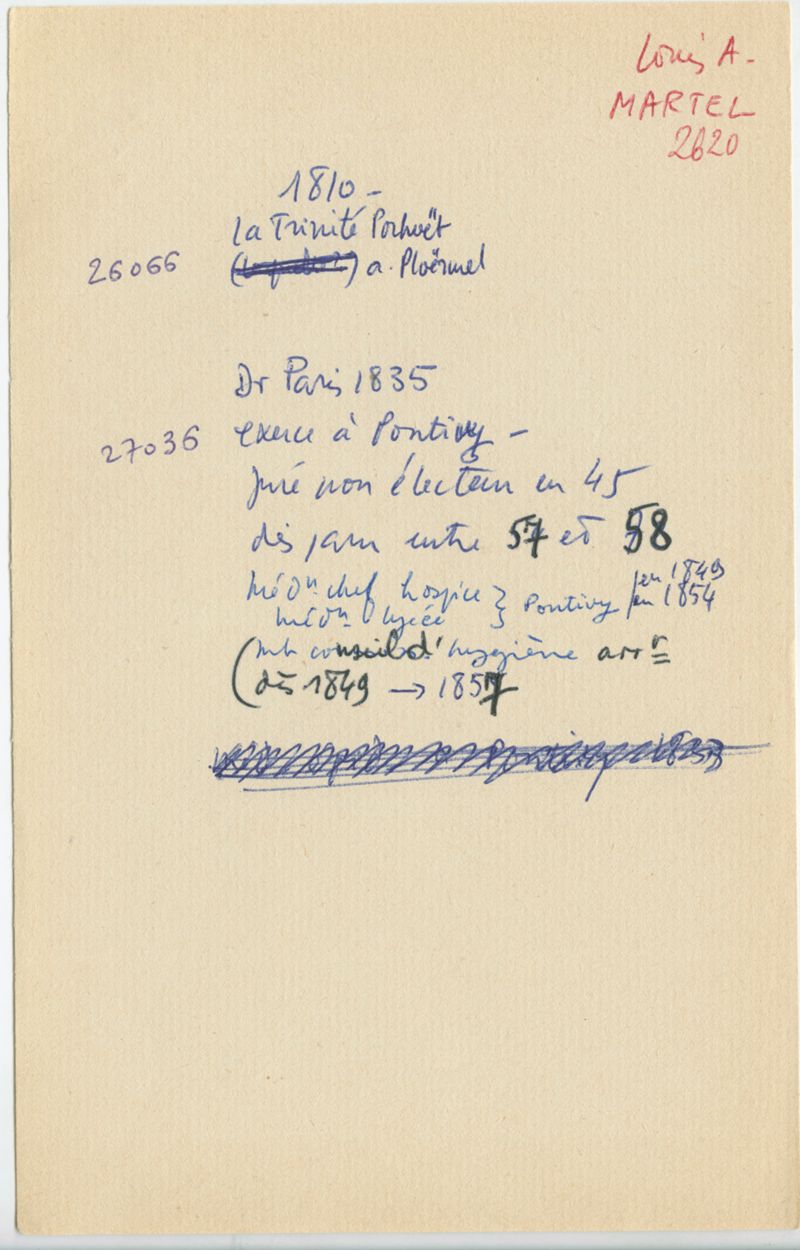 Louis A.
MARTEL
2620
1810 -
La Trinité Porhoët
26066 a. Ploërmel
Dr Paris 1835
27036 exerce à Pontivy -
Juré non électeur en 45
entre 57 et 58
Médn chef hospice } Pontivy / en 1849
médn lycée en 1854
(mb conseil d'hygiène arrr
dès 1849 → 1857